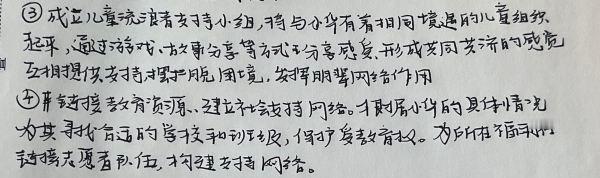 ③成立儿童流浪者支持小组,将与小华有着相同境遇的儿童组织
起来,通过游戏、故事分享等方式分享感受,形成共同共济的感觉
互相提供支持摆脱困境,发挥朋辈网络作用
④链接教育资源、建立社会支持网络。根据小华的具体情况
为其寻找合适的学校和班级,保护受教育权。为所在福利
链接志愿者队伍,构建支持网络。